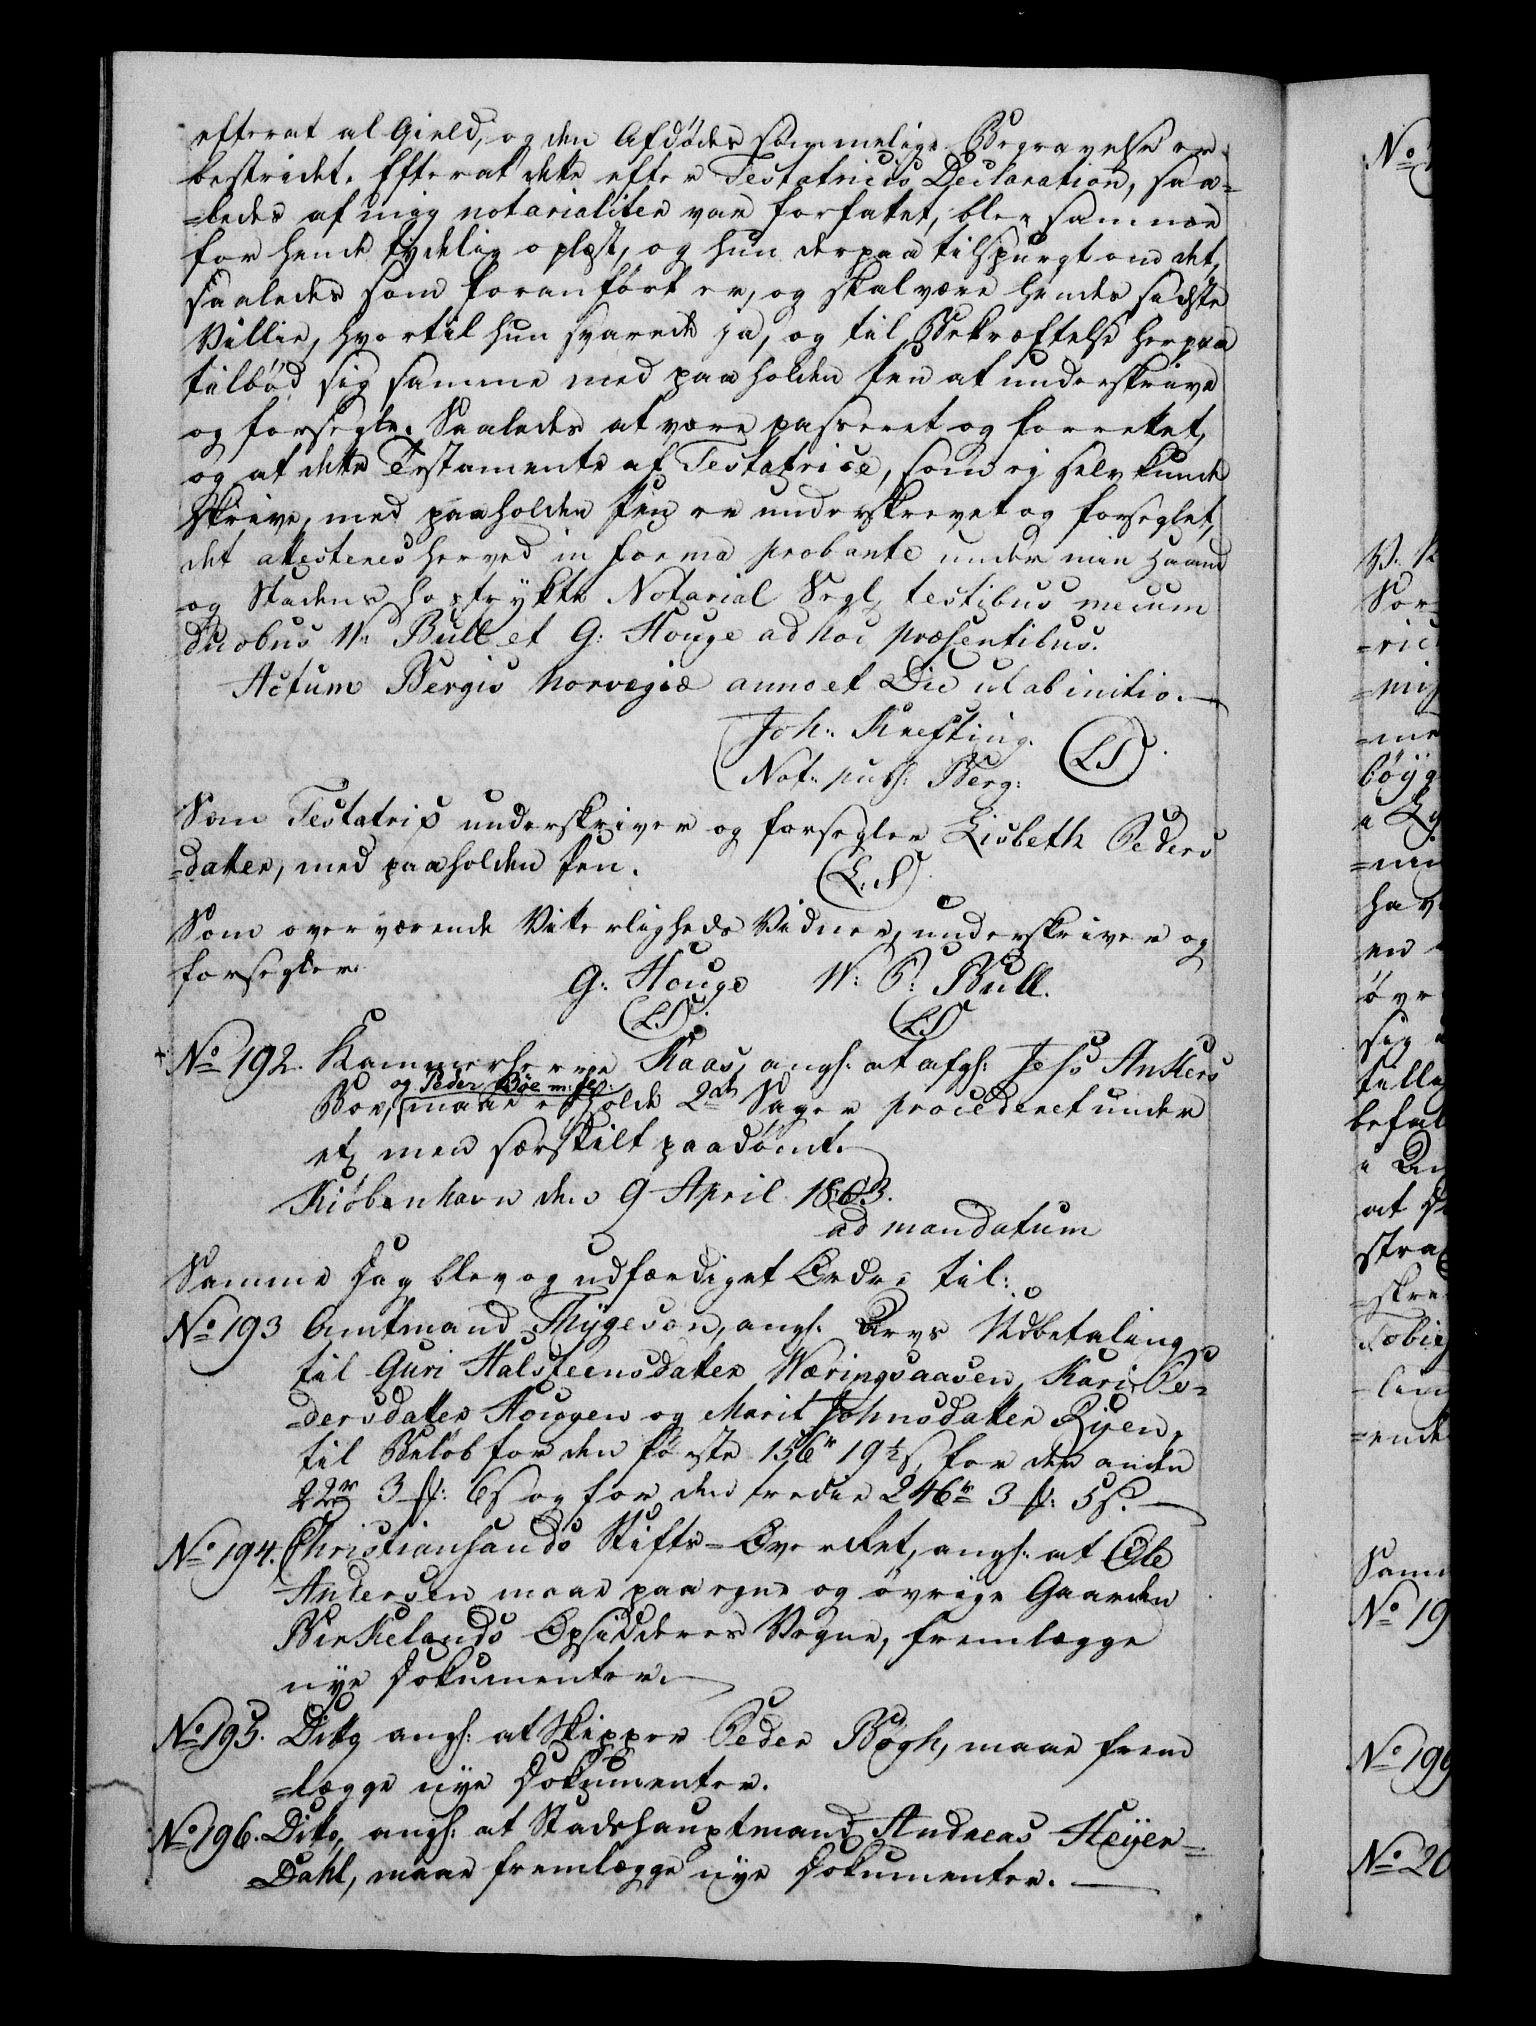 efterat al Gield, og den Afdödes sömmelige Begravelse er
bestridet. Efterat dette efter Testatricis Declaration, saa=
=ledes af mig notarialiter var forfatet, blev samme
for hende tydelig oplæst, og hun derpaa tilspurgt om det,
saaledes som foranfört er, og skal være hendes sidste
Villie, hvortil hun svarede ja, og til Bekræftelse herpaa
tilbød sig samme med paaholden Pen at underskrive
og forsegle. Saaledes at være passeret og forrettet,
og at dette Testamente af Testatrice, som ej selv kunde
skrive, med paaholden Pen er underskrevet og forseglet,
det attesteres herved in forma probante under min Haand
og Stadens hostrykte Notarial Segl, testibus mecum
duobus W: Bull et G: Houge ad hoc præsentibus.
Actum Bergis Norvegiæ anno et Die ut ab initio.
Joh: Krefting. (LS)
Not: publ: Berg:
Som Testatrix underskriver og forsegler Lisbeth Peders
=datter, med paaholden Pen.
(L:S)
Som overværende Vitterligheds Vidner, underskriver og
forsegler
G: Houge W: P: Bull.
(LS) (LS)
No 192. Kammerherre Kaas, angl: at afgl: Jess Ankers
og Peder Bøe m: fl:
Boe, maae erholde 2de Sager procederet under
et, men særskilt paadömt.
Kiöbenhavn den 9 April 1803.
ad mandatum
Samme Dag blev og udfærdiget Ordre til:
No 193 Amtmand Thygeson, angl: Arvs Udbetaling
til Guri Halsteensdatter Næringsaasen, Kari Pe=
=dersdatter Hougen og Marit Johnsdatter Ryen,
til Belöb for den förste 156r 19½s, for den anden
22r 3 #: 6s og for den tredie 246r 3 #: 5s.
No 194. Christiansands Stifts=Overret, angl: at Ole
Andersen maae paa egne og övrige Gaarden
Birkelands Opsidderes Vegne, fremlægge
nye Dokumenter.
No 195. Ditto angl: at Skipper Peder Bøgh, maae frem
=lægge nye Dokumenter.
No 196. Ditto, angl: at Stadshauptmand Andreas Heyer=
Dahl, maae fremlægge nye Dokumenter.